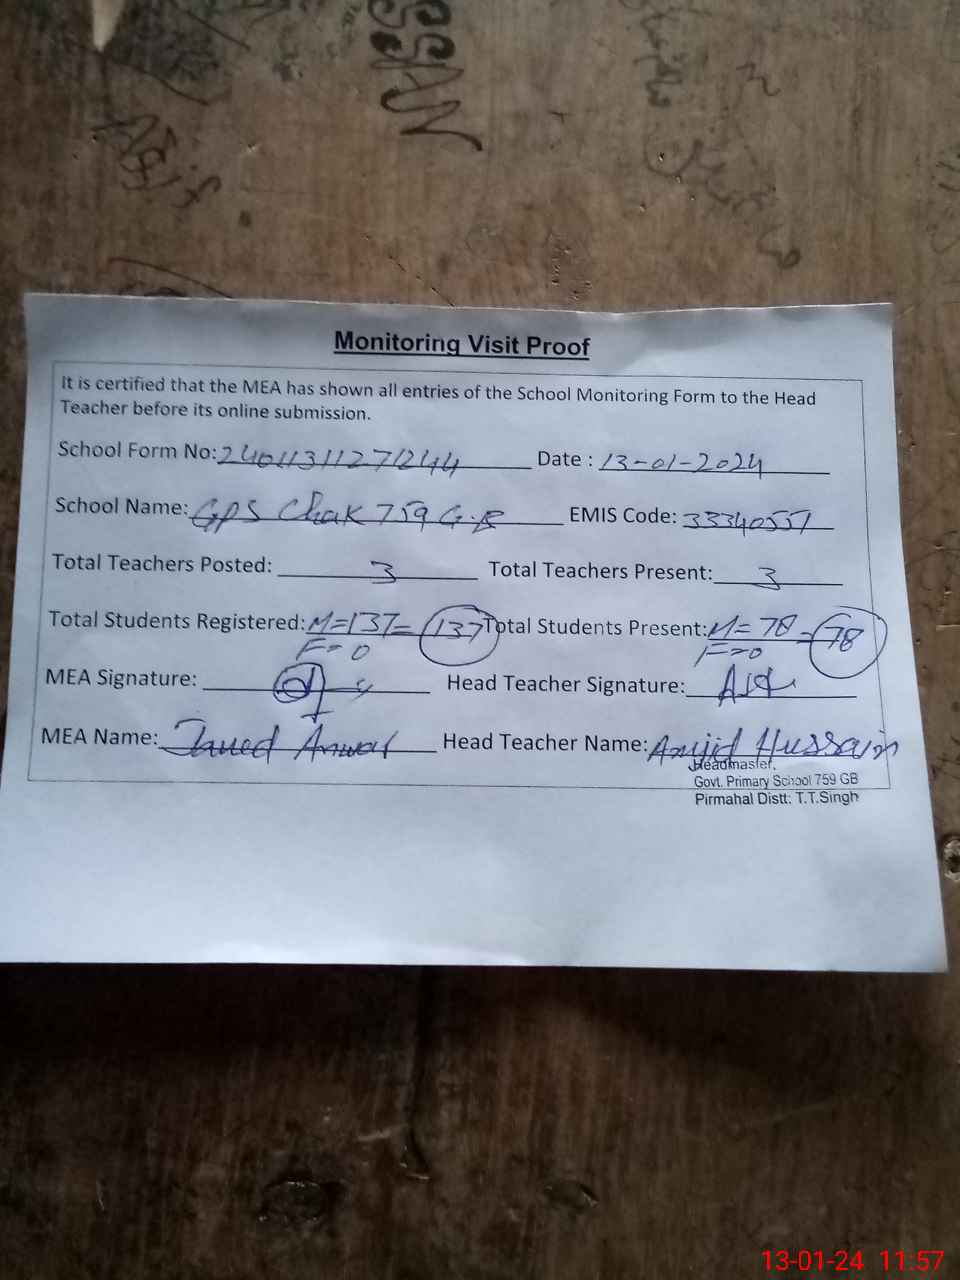 Assan
Asif
Monitoring Visit Proof
It is certified that the MEA has shown all entries of the School Monitoring Form to the Head
Teacher before its online submission.
School Form No: 24011311271244 Date : 13-01-2024
School Name: GPS Chak 759 G.B EMIS Code: 33340557
Total Teachers Posted: 3 Total Teachers Present: 3
Total Students Registered: M=137= 137 Total Students Present: M=78= 78
F=0 F=0
MEA Signature: Head Teacher Signature:
MEA Name: Javed Anwar Head Teacher Name: Amjid Hussain
Headmaster.
Govt. Primary School 759 GB
Pirmahal Distt: T.T.Singh
13-01-24 11:57